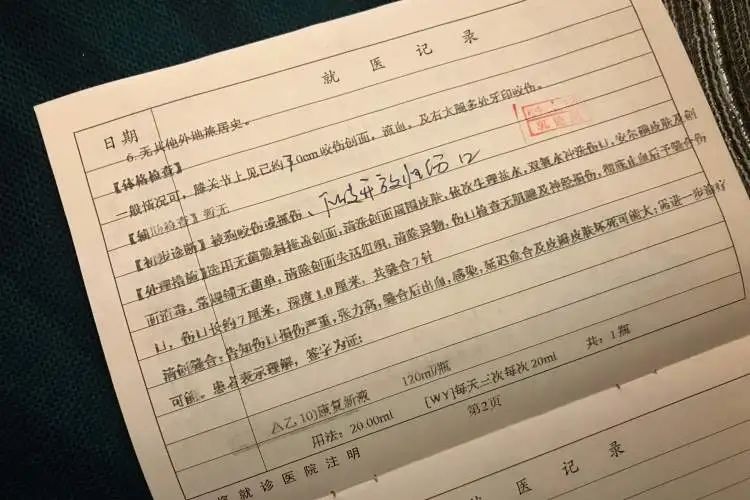 就医记录
日期
6.无其他外地旅居史。
【体格检查】
一般情况可，膝关节上见已约7.0cm咬伤创面，流血，及右大腿多处牙印咬伤。
【辅助检查】暂无
【初步诊断】被狗咬伤或抓伤、下肢开放性伤口
【处理措施】选用无菌敷料掩盖创面，清洗创面周围皮肤，依次生理盐水，双氧水冲洗伤口，安尔碘皮肤及创
面消毒，常规铺无菌单，清除创面失活组织，清除异物，伤口检查无肌腱及神经损伤，彻底止血后予缝合伤
口，伤口长约7厘米，深度1.0厘米，共缝合7针
清创缝合：告知伤口损伤严重，张力高，缝合后出血，感染，延迟愈合及皮瓣皮肤坏死可能大；需进一步治疗
可能。患者表示理解，签字为证：
△乙10)康复新液 120ml/瓶 共：1瓶
用法：20.00ml [WY]每天三次每次20ml
第2页
就诊医院注明
医记录